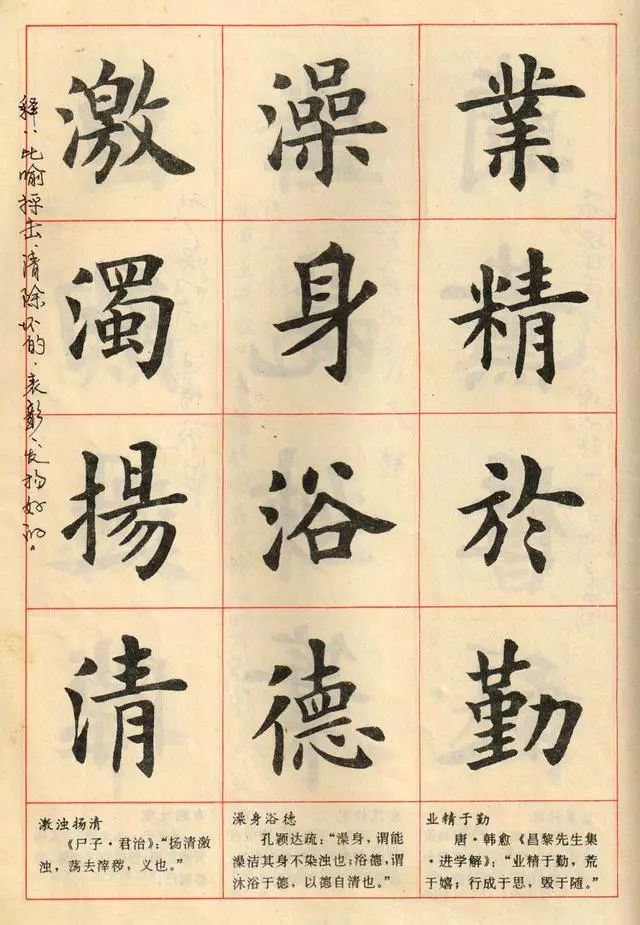 業精於勤
澡身浴德
激濁揚清
释：比喻抨击、清除坏的，表彰、发扬好的。
业精于勤
唐·韩愈《昌黎先生集
·进学解》：“业精于勤，荒
于嬉；行成于思，毁于随。”
澡身浴德
孔颖达疏：“澡身，谓能
澡洁其身不染浊也；浴德，谓
沐浴于德，以德自清也。”
激浊扬清
《尸子·君治》：“扬清激
浊，荡去滓秽，义也。”